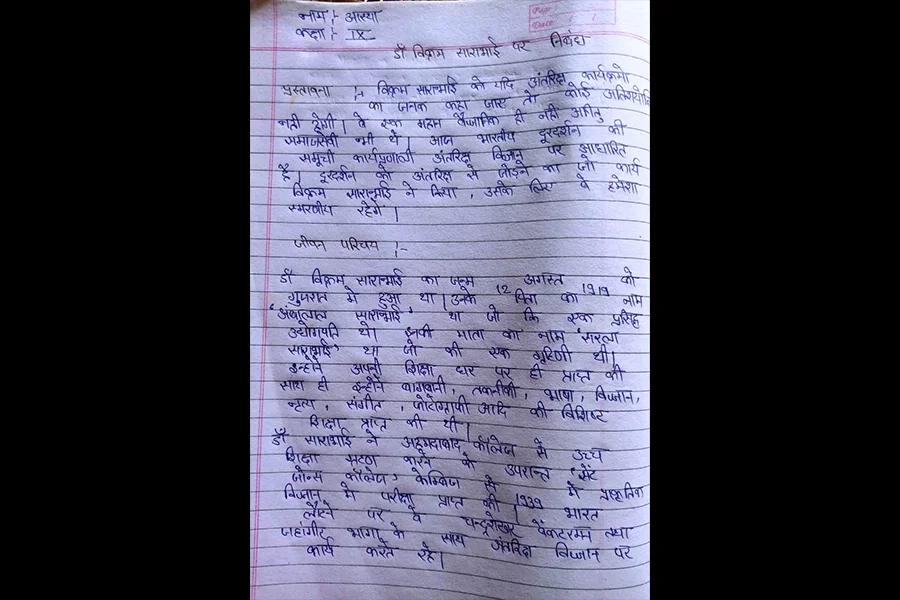 नाम :- आस्था
कक्षा :- IX
Page
Date
डॉ विक्रम साराभाई पर निबंध
प्रस्तावना :- विक्रम साराभाई को यदि अंतरिक्ष कार्यक्रमो
का जनक कहा जाए तो कोई अतिशयोक्ति
नही होगी। वे एक महान वैज्ञानिक ही नही अपितु
समाजसेवी भी थे। आज भारतीय दूरदर्शन की
समूची कार्यप्रणाली अंतरिक्ष विज्ञान पर आधारित
है। दूरदर्शन को अंतरिक्ष से जोड़ने का जो कार्य
विक्रम साराभाई ने किया, उसके लिए वे हमेशा
स्मरणीय रहेगे।
जीवन परिचय :-
डॉ विक्रम साराभाई का जन्म 12 अगस्त 1919 को
गुजरात मे हुआ था। उनके पिता का नाम
'अंबालाल साराभाई' था जो कि एक प्रसिद्ध
उद्योगपति थे। इनकी माता का नाम 'सरला
साराभाई' था जो की एक गृहिणी थी।
इन्होने अपनी शिक्षा घर पर ही प्राप्त की
साथ ही इन्होने बागवानी, तकनीकी, भाषा, विज्ञान,
नृत्य, संगीत, फोटोग्राफी आदि की विशिष्ट
शिक्षा प्राप्त की थी।
डॉ साराभाई ने अहमदाबाद कॉलेज से उच्च
शिक्षा ग्रहण करने के उपरान्त 'सेंट
जोन्स कॉलेज' केम्ब्रिज से में प्राकृतिक
विज्ञान मे परीक्षा प्राप्त की। 1939 भारत
लौटने पर वे चन्द्रशेखर वेंकटरमन तथा
जहांगीर भाभा के साथ अंतरिक्ष विज्ञान पर
कार्य करते रहे।